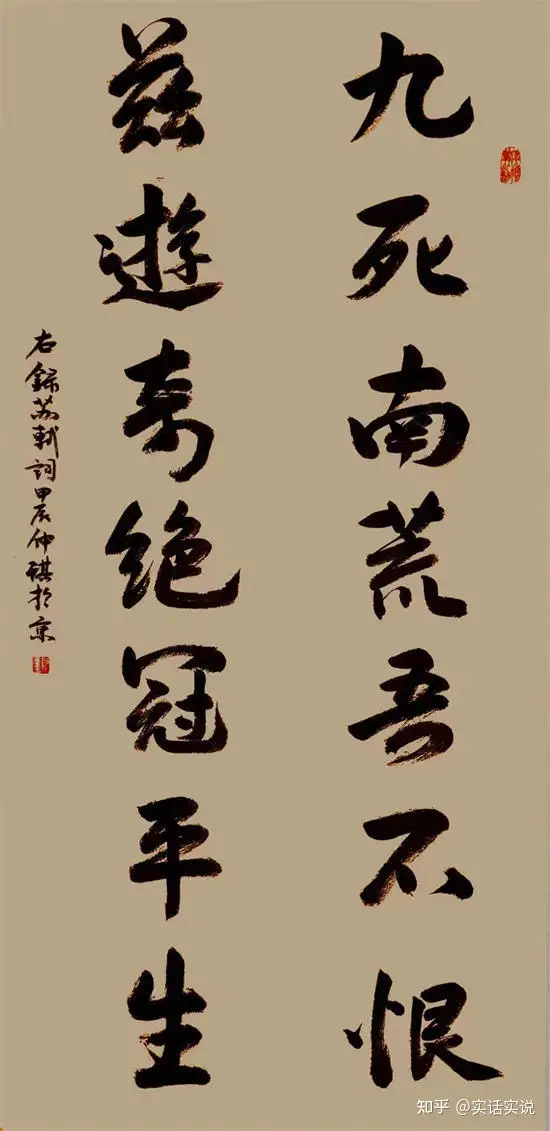 九死南荒吾不恨
兹遊奇絶冠平生
右錄苏軾詞甲辰仲琪於京
知乎 @实话实说